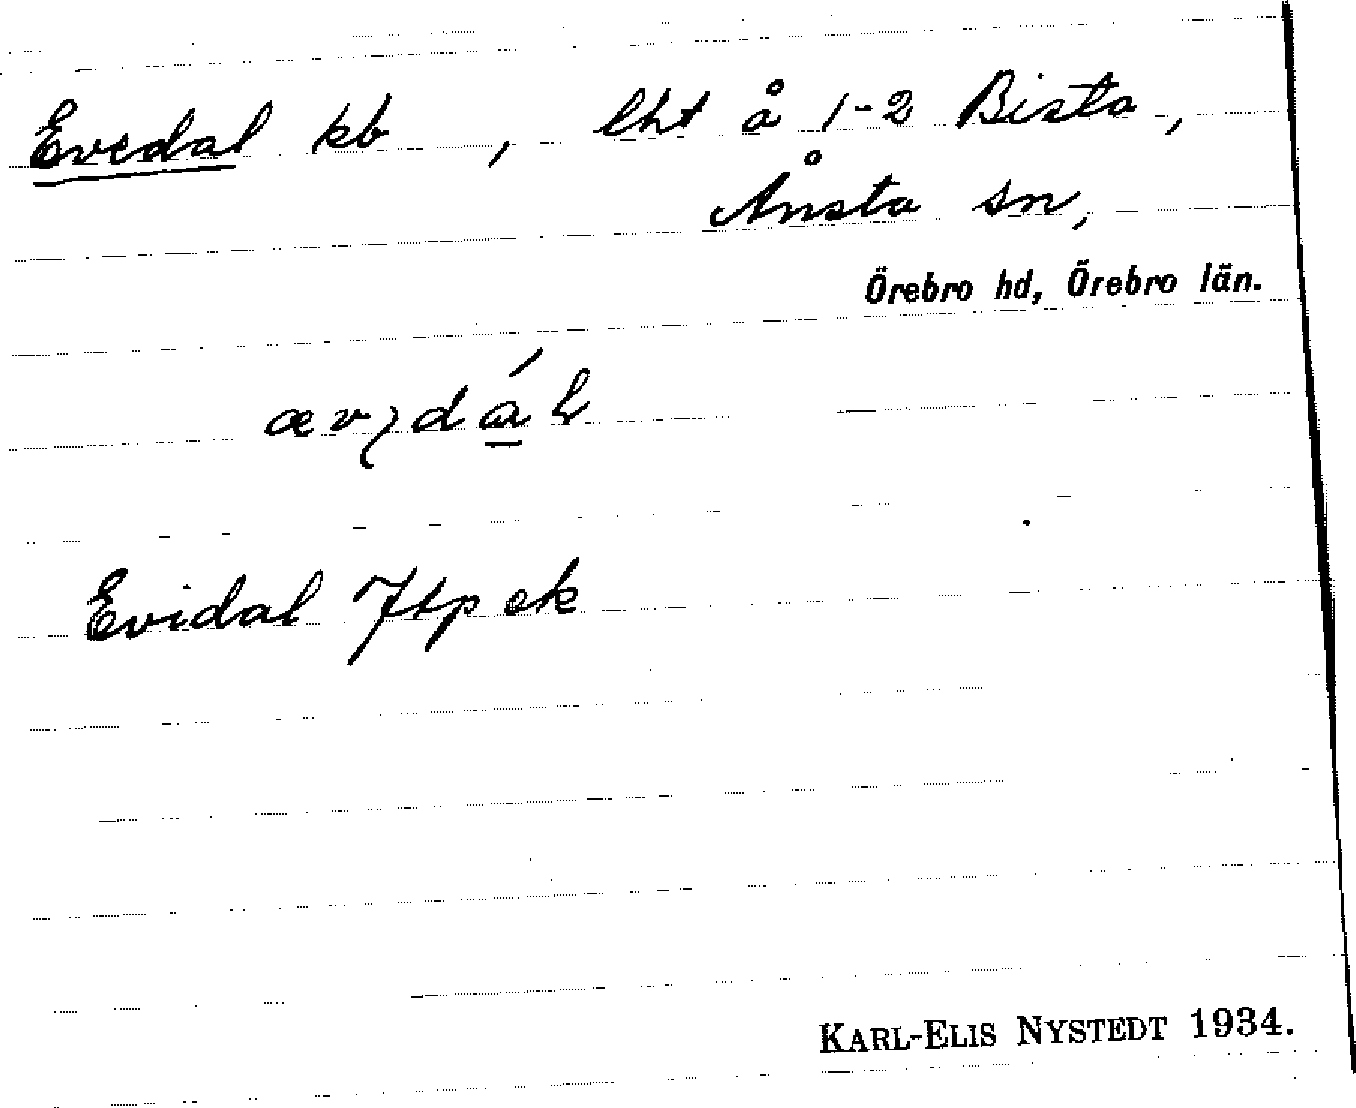 Evedal kb , lht å 1-2 Bista,
Ånsta sn,
Örebro hd, Örebro län.
Evidal Jtp ek
KARL-ELIS NYSTEDT 1934.